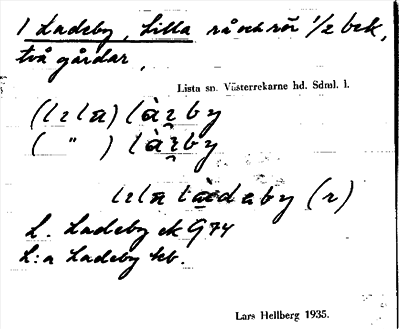 1 Ladeby, Lilla rå och rör 1/2 bek,
två gårdar,
Lista sn. Västerrekarne hd. Sdml. l.
(lɩla) làɩby
( " ) làɩby
lɩla làdeby (2)
L. Ladeby ek G 74
L:a Ladeby kb.
Lars Hellberg 1935.